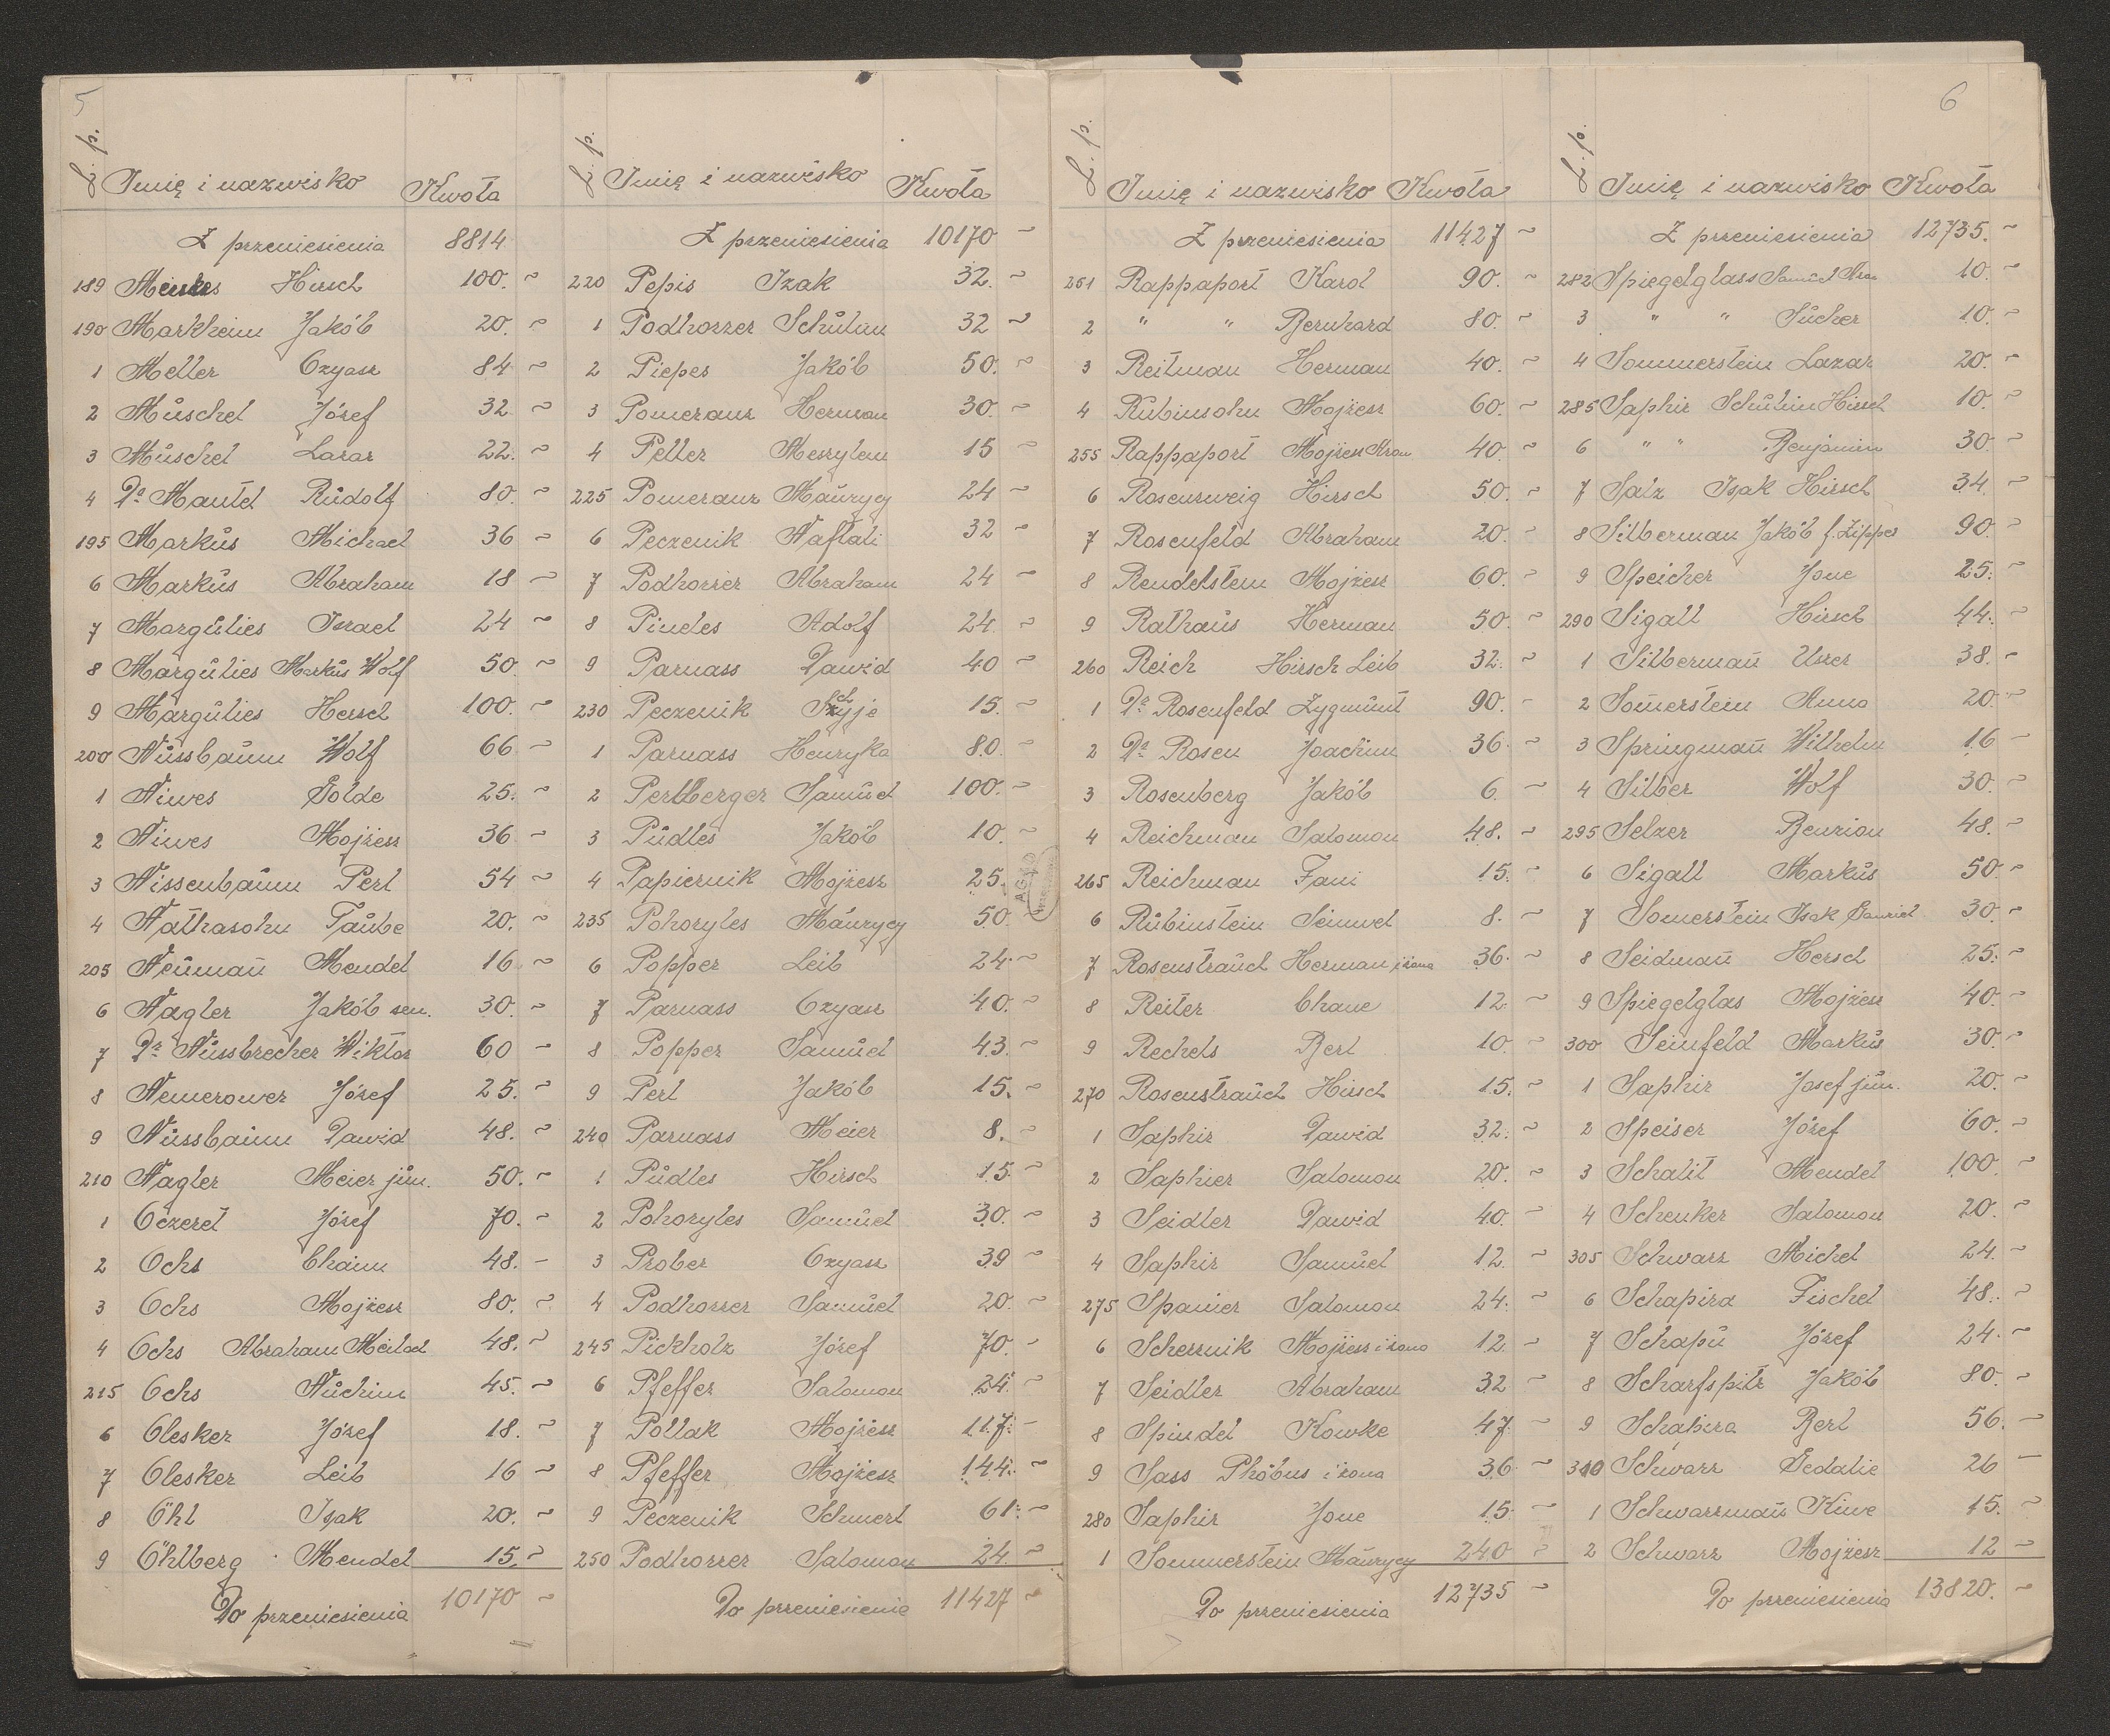 5
L. p. Imię i nazwisko Kwota
Z przeniesienia 8814
189 Meiseles Hirsch 100. ~
190 Markheim Jakób 20. ~
1 Meller Ozyasz 84 ~
2 Müschel Józef 32 ~
3 Müschel Lazar 22. ~
4 Dr Mantel Rudolf 80. ~
195 Markus Michael 36 ~
6 Markus Abraham 18 ~
7 Margulies Israel 24 ~
8 Margulies Markus Wolf 50. ~
9 Margulies Hersch 100. ~
200 Nussbaum Wolf 66 ~
1 Niwes Golde 25. ~
2 Niwes Mojżesz 36 ~
3 Nissenbaum Perl 54 ~
4 Nathasohn Taube 20. ~
205 Neuman̄ Mendel 16 ~
6 Nagler Jakób sen. 30. ~
7 Dr Nussbrecher Wiktor 60 ~
8 Nemerower Józef 25. ~
9 Nussbaum Dawid 48. ~
210 Nagler Meier jun. 50. ~
1 Oczeret Józef 70. ~
2 Ochs Chaim 48. ~
3 Ochs Mojżesz 80. ~
4 Ochs Abraham Meilech 48. ~
215 Ochs Nuchim 45. ~
6 Olesker Józef 18. ~
7 Olesker Leib 16 ~
8 Öhl Isak 20. ~
9 Öhlberg Mendel 15. ~
Do przeniesienia 10170 ~
L. p. Imię i nazwisko Kwota
Z przeniesienia 10170 ~
220 Pepis Izak 32. ~
1 Podhorzer Schulim 32 ~
2 Pieper Jakób 50. ~
3 Pomeranz Herman 30. ~
4 Peller Meszylem 15 ~
225 Pomeranz Maurycy 24 ~
6 Peczenik Naftali 32 ~
7 Podhorzer Abraham 24 ~
8 Pindes Adolf 24. ~
9 Parnass Dawid 40 ~
230 Peczenik Schyje 15. ~
1 Parnass Henryka 80. ~
2 Perlberger Samuel 100. ~
3 Pudles Jakób 10. ~
4 Papiernik Mojżesz 25.
235 Pohoryles Maurycy 50
6 Popper Leib 24. ~
7 Parnass Ozyasz 40. ~
8 Popper Samuel 43. ~
9 Perl Jakób 15. ~
240 Parnass Meier 8. ~
1 Pudles Hirsch 15. ~
2 Pohoryles Samuel 30. ~
3 Prober Ozyasz 39 ~
4 Podhorzer Samuel 20. ~
245 Pickholz Józef 70. ~
6 Pfeffer Salomon 24. ~
7 Pollak Mojżesz 117. ~
8 Pfeffer Mojżesz 144. ~
9 Peczenik Schmerl 61. ~
250 Podhorzer Salomon 24. ~
Do przeniesienia 11427 ~
L. p. Imię i nazwisko Kwota
Z przeniesienia 11427 ~
251 Rappaport Karol 90. ~
2 " " Bernhard 80. ~
3 Reitman Herman 40. ~
4 Rubinsohn Mojżesz 60. ~
255 Rappaport Mojżesz Aron 40. ~
6 Rosenzweig Hirsch 50. ~
7 Rosenfeld Abraham 20. ~
8 Rendelstein Mojżesz 60. ~
9 Rathaus Herman 50. ~
260 Reich Hirsch Leib 32. ~
1 Dr Rosenfeld Zygmunt 90. ~
2 Dr Rosen Joachim 36. ~
3 Rosenberg Jakób 6. ~
4 Reichman Salomon 48. ~
265 Reichman Fani 15. ~
6 Rubinstein Seinwel 8. ~
7 Rosenstrauch Herman i żona 36. ~
8 Reiter Chane 12. ~
9 Rechels Berl 10. ~
270 Rosenstrauch Hirsch 15. ~
1 Saphir Dawid 32. ~
2 Saphier Salomon 20. ~
3 Seidler Dawid 40. ~
4 Saphir Samuel 12. ~
275 Spanier Salomon 24. ~
6 Schersnik Mojżesz i żona 12. ~
7 Seidler Abraham 32 ~
8 Spindel Kowke 47. ~
9 Sass Phöbus i żona 36. ~
280 Saphir Jone 15. ~
1 Sommerstein Maurycy 240 ~
Do przeniesienia 12735 ~
6
L. p. Imię i nazwisko Kwota
Z przeniesienia 12735. ~
282 Spiegelglass Samuel Aron 10. ~
3 " " Sucher 10. ~
4 Sommerstein Lazar 20. ~
285 Saphir Schulim Hirsch 10. ~
6 " " Benjamin 30. ~
7 Salz Isak Hirsch 34. ~
8 Silberman Jakób f. Zipper 90. ~
9 Speicher Jone 25. ~
290 Sigall Hirsch 44. ~
1 Silberman̄ Uszer 38. ~
2 Som̄erstein Anna 20. ~
3 Springman̄ Wilhelm 16 ~
4 Silber Wolf 30. ~
295 Selzer Benzion 48. ~
6 Sigall Markus 50. ~
7 Somerstein Isak 30. ~
8 Seidman̄ Hersch 25. ~
9 Spiegelglas Mojżesz 40. ~
300 Seinfeld Markus 30. ~
1 Saphir Josef jun. 20. ~
2 Speiser Józef 60. ~
3 Schalit Mendel 100. ~
4 Schenker Salomon 20. ~
305 Schwarz Michel 24. ~
6 Schapira Fischel 48. ~
7 Schapu Józef 24. ~
8 Scharfspitz Jakób 80. ~
9 Schapira Berl 56. ~
310 Schwarz Gedalie 26 ~
1 Schwarzman̄ Kiwe 15. ~
2 Schwarz Mojżesz 12 ~
Do przeniesienia 13820. ~